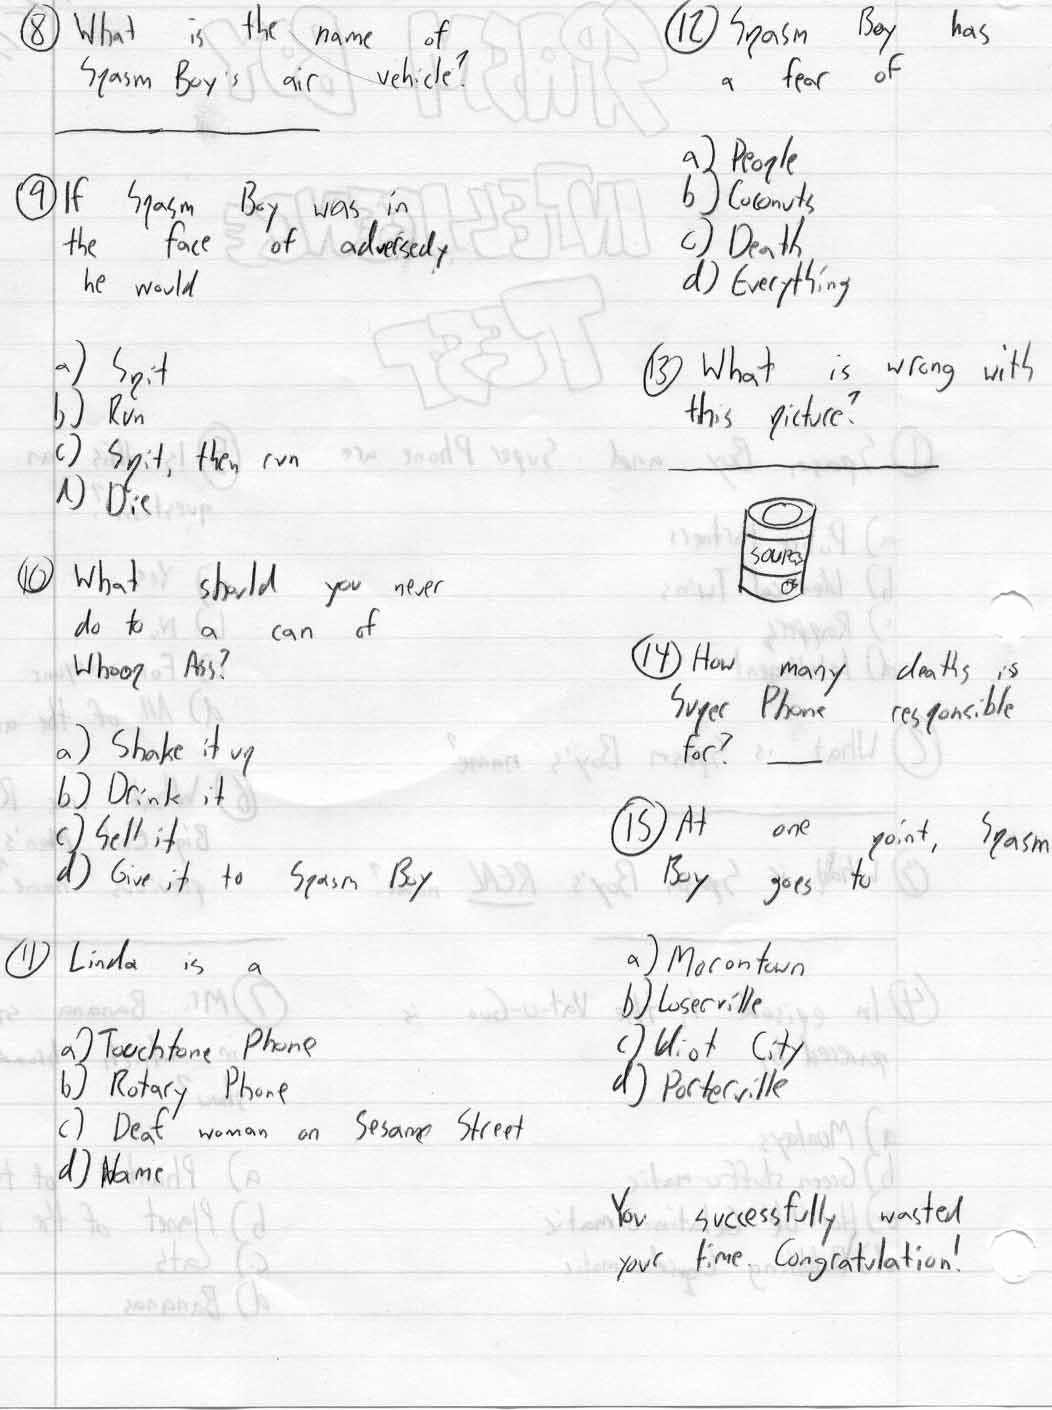 8 What is the name of
Spasm Boy's air vehicle?
9 If Spasm Boy was in
the face of adversedy
he would
a) Spit
b) Run
c) Spit, then run
d) Die
10 What should you never
do to a can of
Whoop Ass?
a) Shake it up
b) Drink it
c) Sell it
d) Give it to Spasm Boy
11 Linda is a
a) Touchtone Phone
b) Rotary Phone
c) Deaf woman on Sesame Street
d) Name
12 Spasm Boy has
a fear of
a) People
b) Coconuts
c) Death
d) Everything
13 What is wrong with
this picture?
SOUP
14 How many deaths is
Super Phone responsible
for?
15 At one point, Spasm
Boy goes to
a) Morontown
b) Loserville
c) Idiot City
d) Porterville
You successfully wasted
your time. Congratulation!